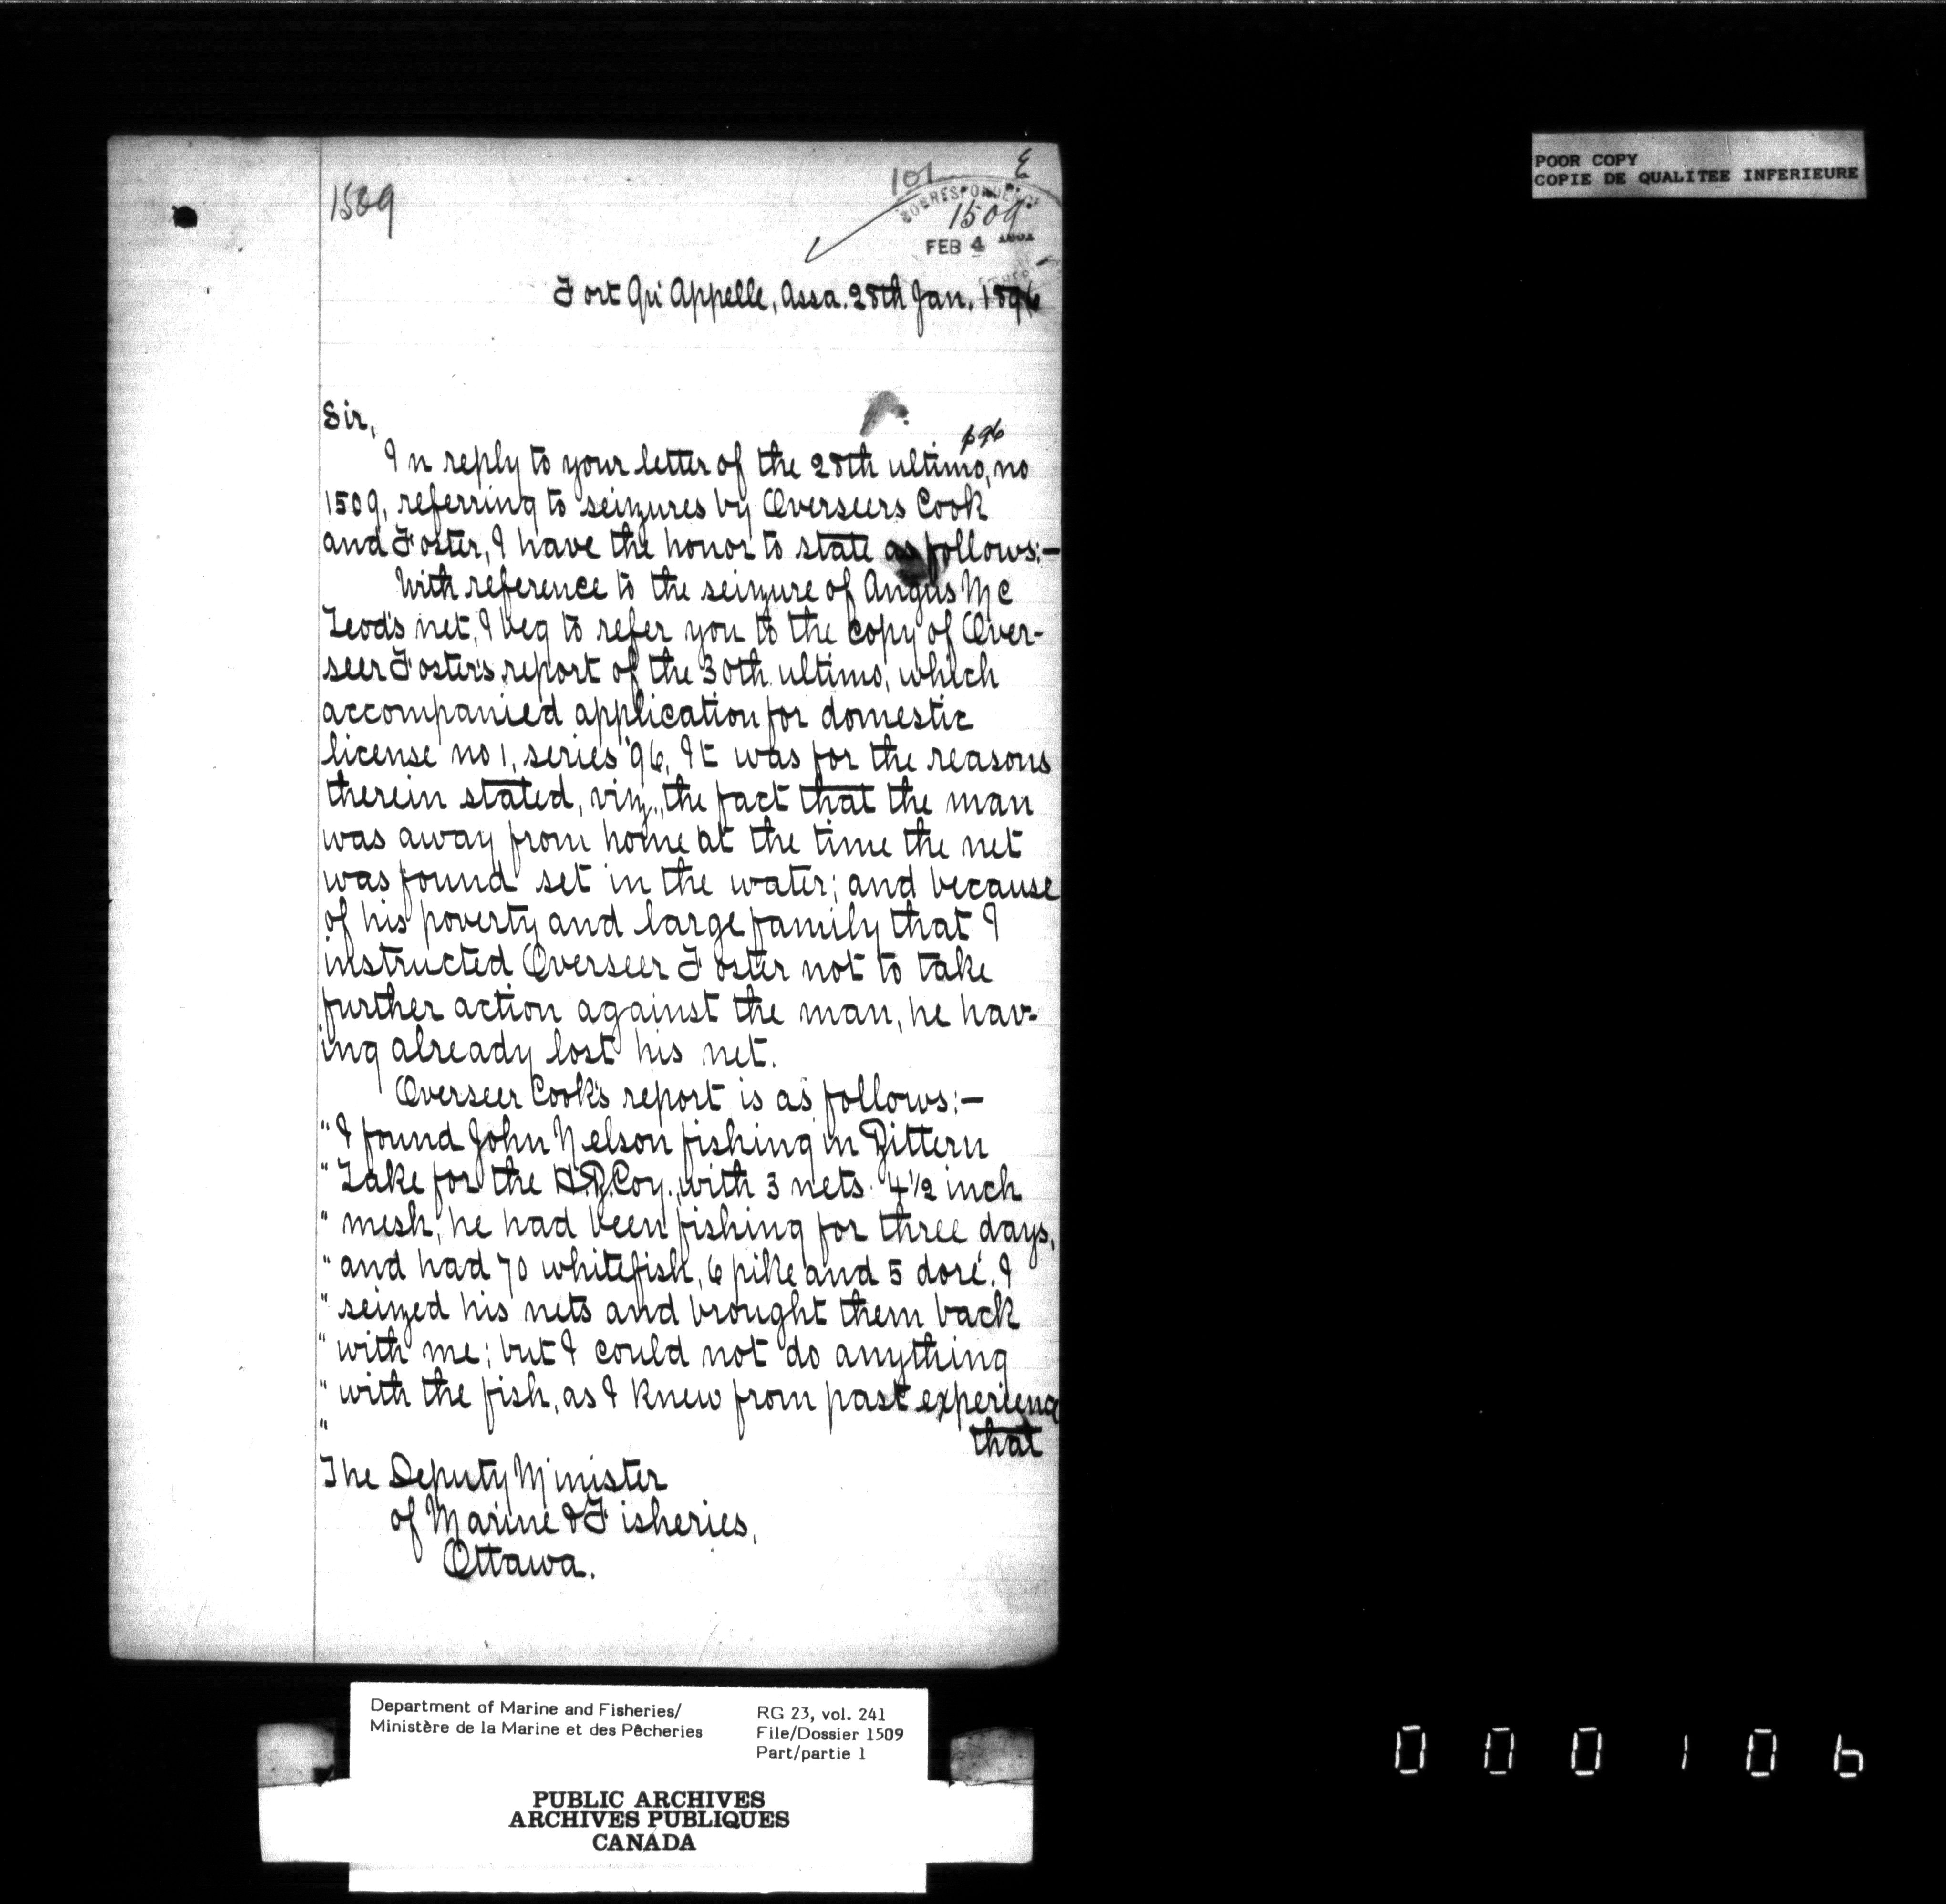 101 E
1509
CORRESPONDENCE
1509
FEB 4
Fort Qu'Appelle, Assa. 28th Jan. 1896
Sir,
p96
In reply to your letter of the 28th ultimo, no
1509, referring to seizures by Overseers Cook
and Foster, I have the honor to state as follows:—
With reference to the seizure of Angus Mc
Leod's net, I beg to refer you to the copy of Over-
seer Foster's report of the 30th ultimo, which
accompanied application for domestic
license no 1, series '96. It was for the reasons
therein stated, viz., the fact that the man
was away from home at the time the net
was found set in the water; and because
of his poverty and large family that I
instructed Overseer Foster not to take
further action against the man, he hav-
ing already lost his net.
Overseer Cook's report is as follows:—
"I found John Nelson fishing in Bittern
"Lake for the H.B.Coy., with 3 nets 4 1/2 inch
"mesh, he had been fishing for three days,
"and had 70 whitefish, 6 pike and 5 doré. I
"seized his nets and brought them back
"with me; but I could not do anything
"with the fish, as I knew from past experience
"
that
The Deputy Minister
of Marine & Fisheries,
Ottawa.
POOR COPY
COPIE DE QUALITEE INFERIEURE
Department of Marine and Fisheries/
Ministère de la Marine et des Pêcheries
RG 23, vol. 241
File/Dossier 1509
Part/partie 1
PUBLIC ARCHIVES
ARCHIVES PUBLIQUES
CANADA
000106